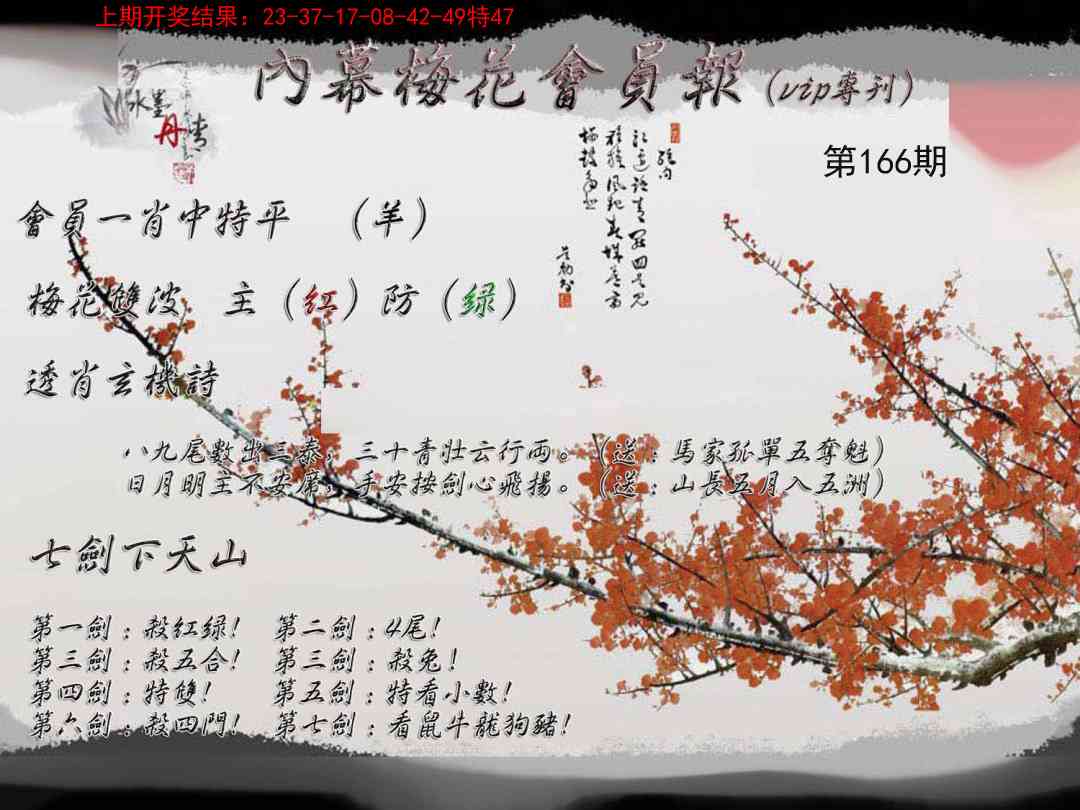 上期开奖结果：23-37-17-08-42-49特47
內幕梅花會員報（vip專刊）
水墨
丹青
第166期
會員一肖中特平　（羊）
梅花雙波　主（红）防（绿）
透肖玄機詩
八九尾數出三泰，三十青壯云行雨。（送：馬家孤單五奪魁）
日月明主不安席，手安按劍心飛揚。（送：山長五月入五洲）
七劍下天山
第一劍：殺红绿！　第二劍：4尾！
第三劍：殺五合！　第三劍：殺兔！
第四劍：特雙！　第五劍：特看小數！
第六劍：殺四門！　第七劍：看鼠牛龍狗豬！